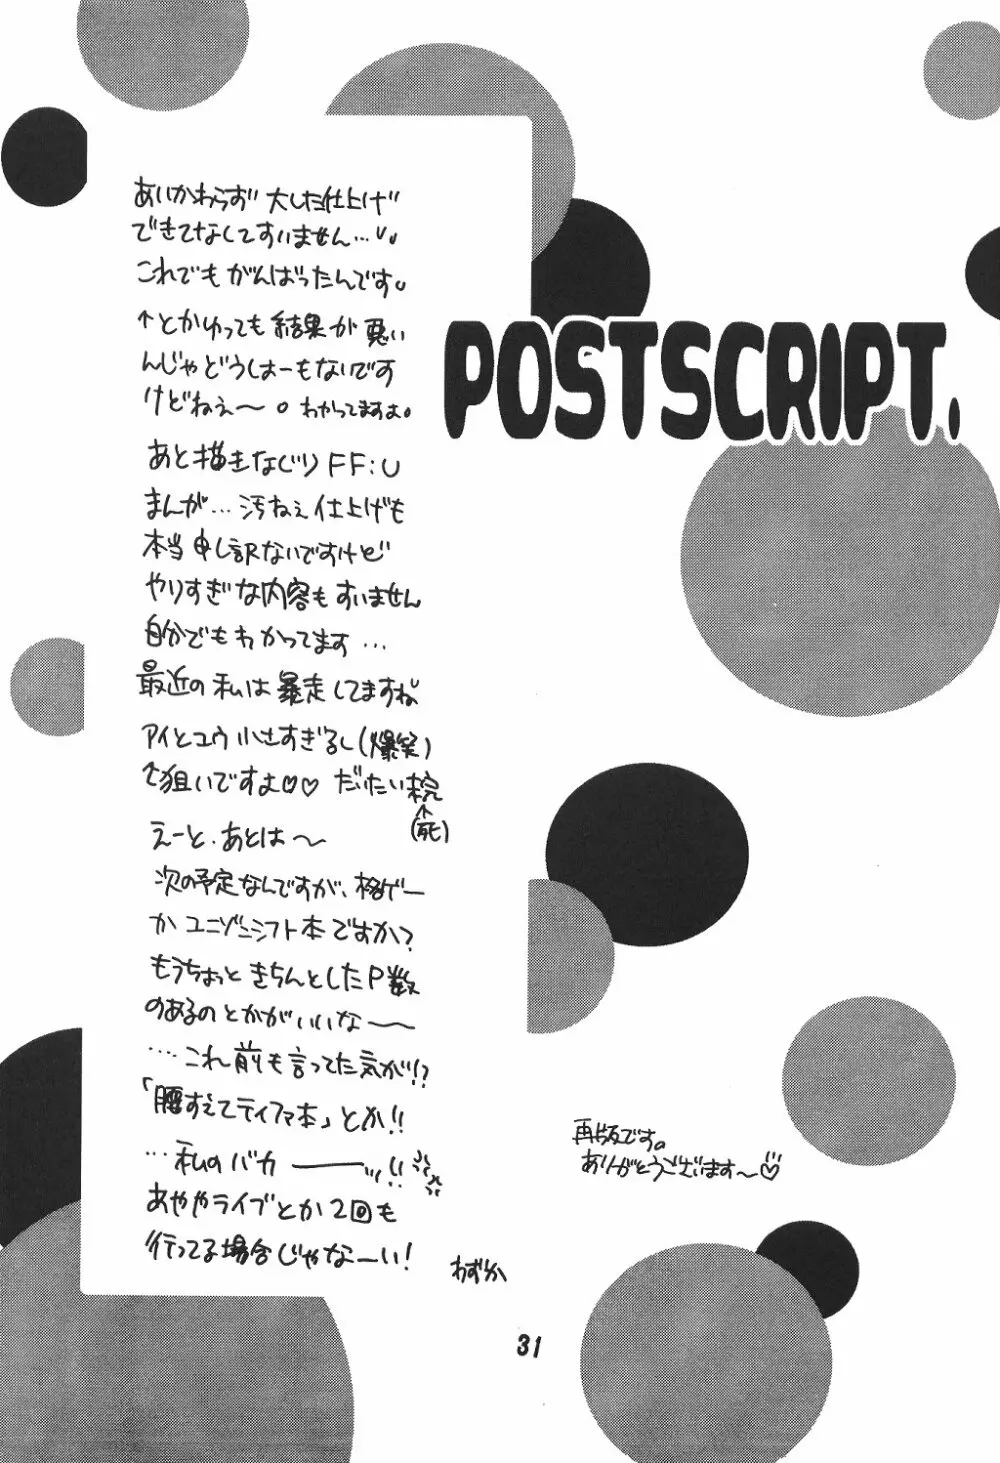 POSTSCRIPT.
あいかわらず大した仕上げ
できてなしてすいません…
これでもがんばったんです。
↑とかゆっても結果が悪い
んじゃどうしよーもないです
けどねぇ〜。わかってますよ。
あと描きなぐりFF:U
まんが…汚ねぇ仕上げも
本当申し訳ないですけど
やりすぎな内容もすいません
自分でもわかってます…
最近の私は暴走してますね。
アイとユウ小さすぎるし(爆笑)
↑狙いですよ♡♡ だいたい
↑
(死)
えーと、あとは〜
次の予定なんですが、格ゲー
かユニゾンシフト本ですか?
もうちょっときちんとしたP数
のあるのとかがいいな──
….これ前も言ってた気が!?
「腰すえてティファ本」とか!!
…私のバカ───ッ!!
あややライブとか2回も
行ってる場合じゃなーい!
わずか
再版です。
ありがとうございます〜♡
31